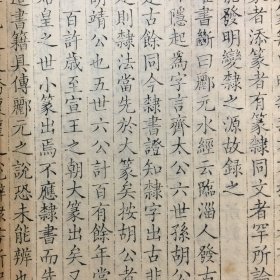 者有篆隸同文者罕所
能發明變隸之源故錄之
書斷曰酈元水經云臨淄人發古
隱起為字言齊太公六世孫胡公
是古餘同今隸書證知隸字出古非
之則隸法當先於大篆矣按胡公
胡靖公也五世六公計百有餘年當
百許歲至宣王之朝大篆出矣又
始皇之世小篆出焉不應隸書而先
造書籍具傳酈元之說恐未能辨也